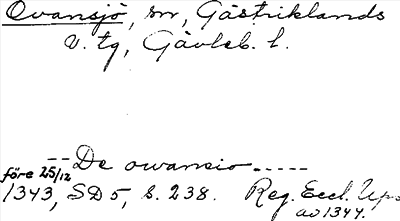 Ovansjö, sn, Gästriklands
v. tg, Gävleb. l.
-- De owansio -----
före 25/12
1343, SD 5, s. 238. Reg. Eccl. Ups.
av 1344.